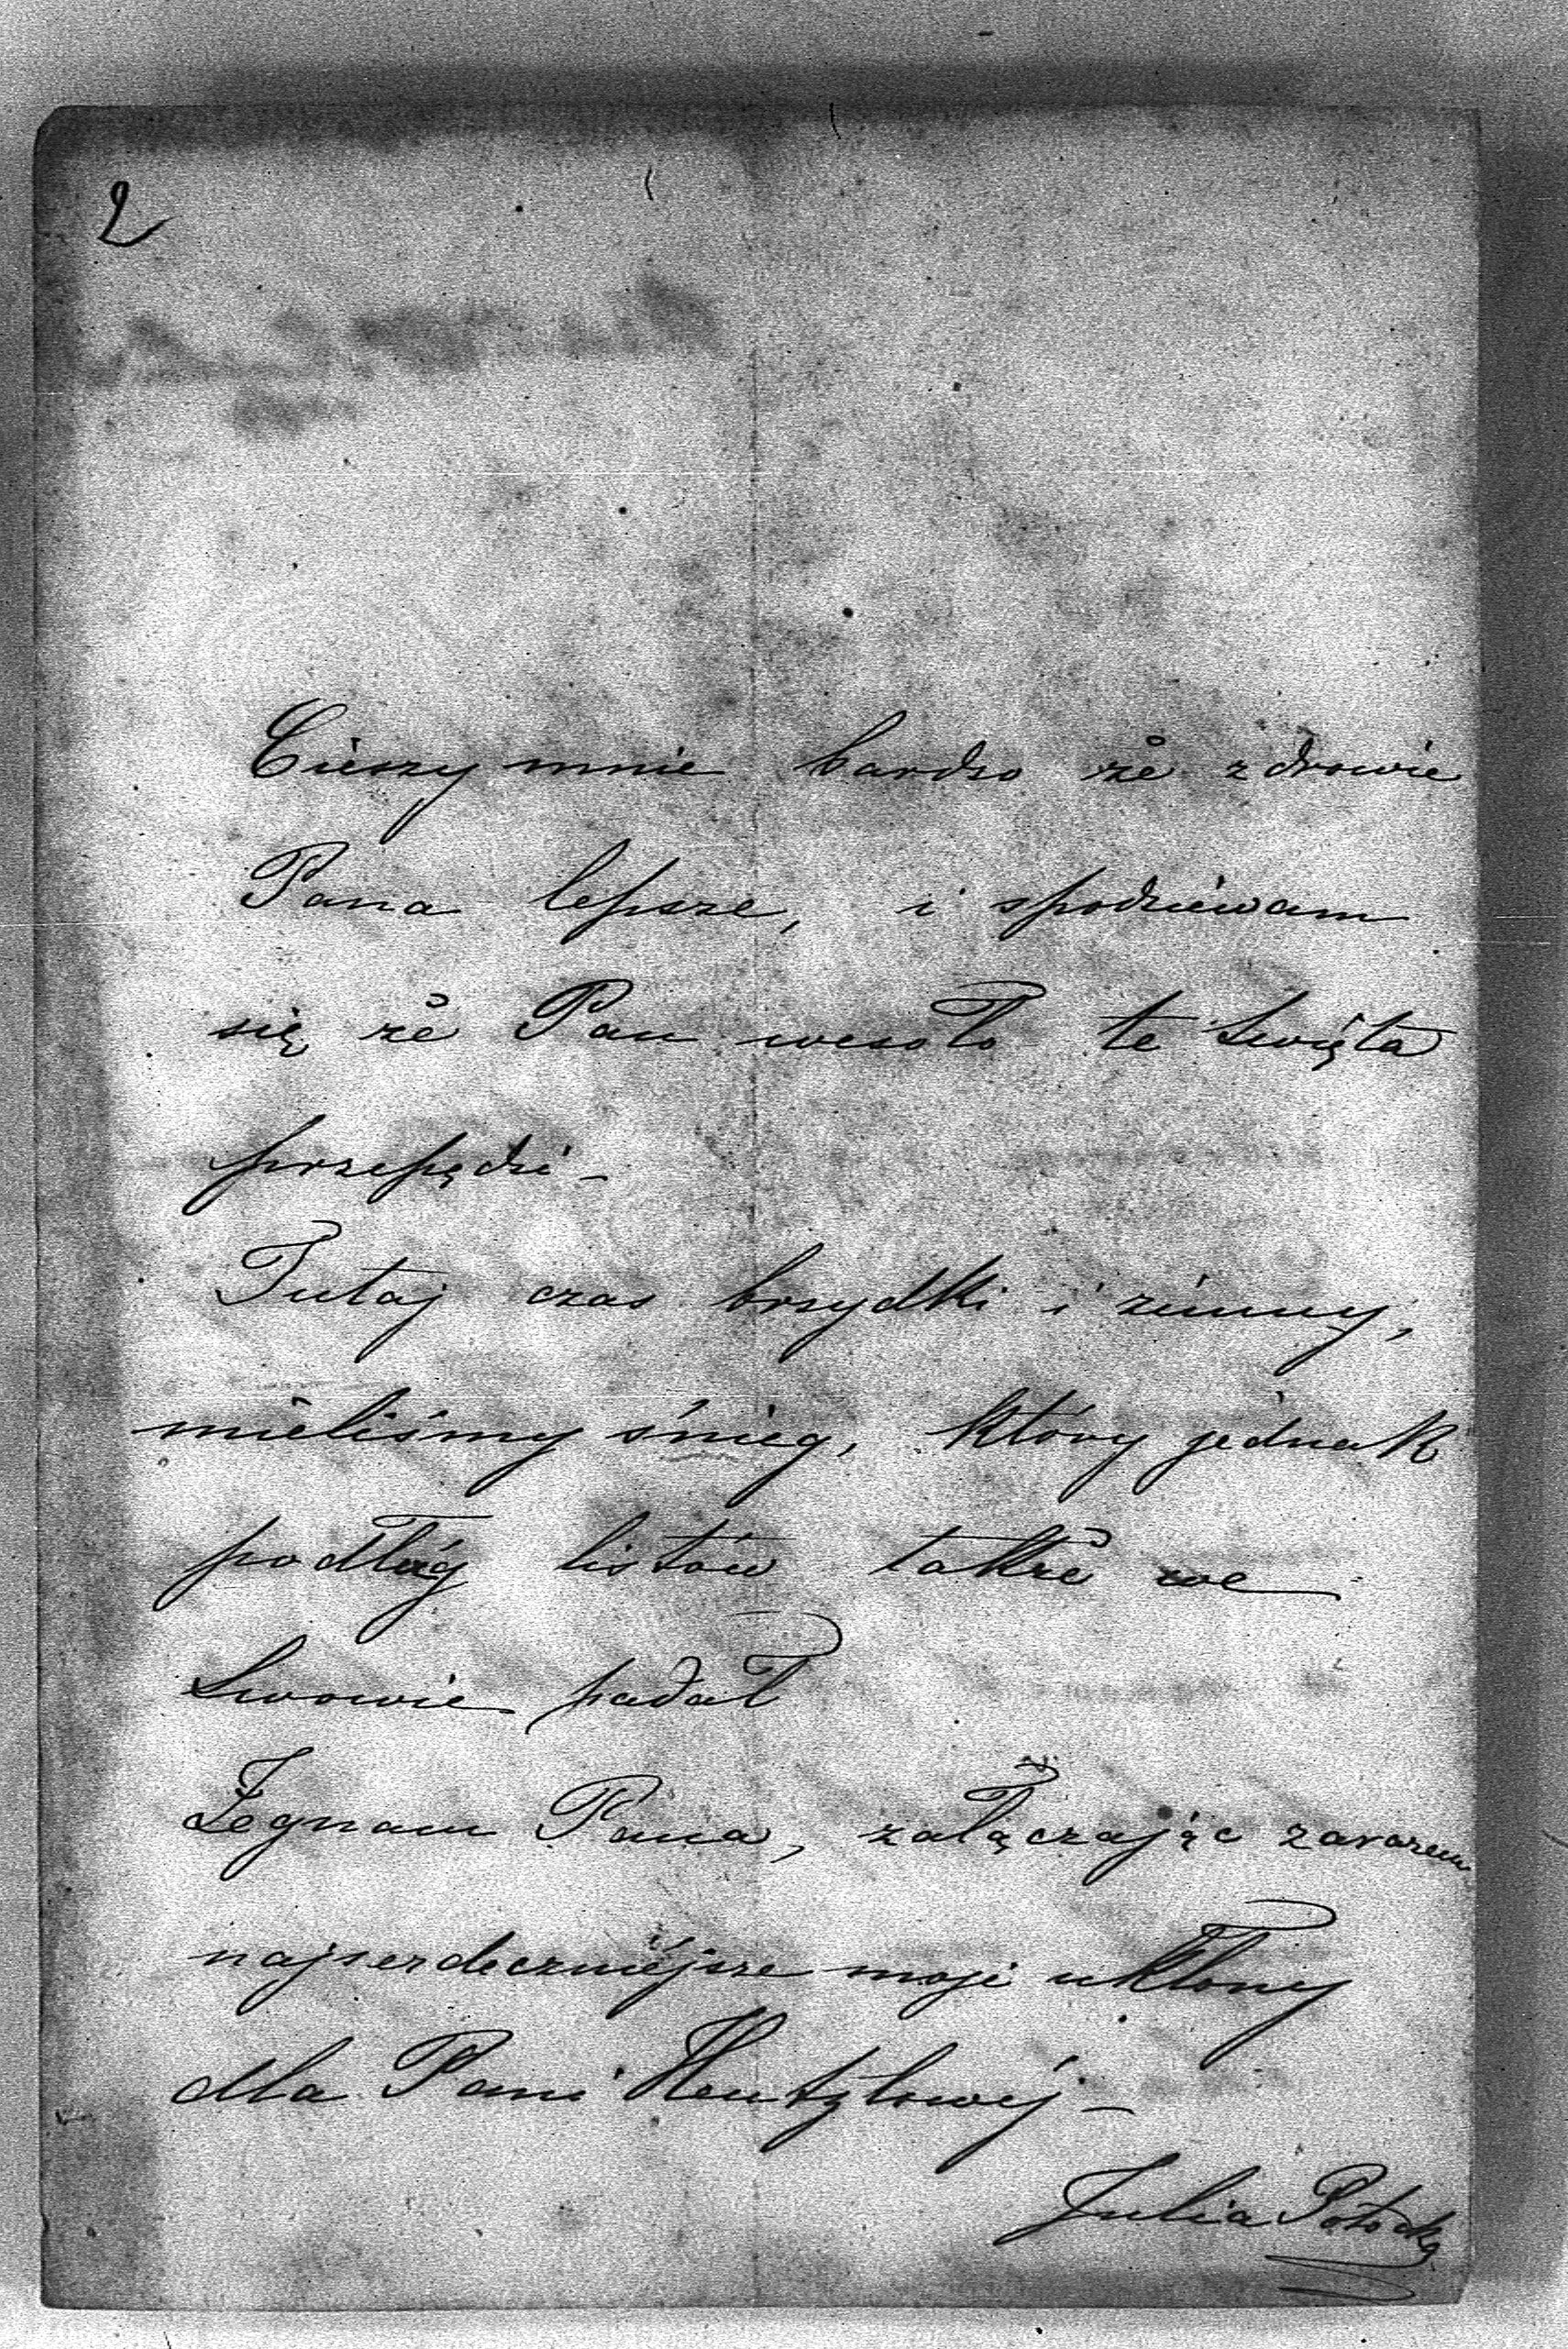 2
Cieszy mnie bardzo że zdrowie
Pana lepsze, i spodziewam
się że Pan wesoło te Święta
przepędzi –
Tutaj czas brzydki i zimny,
mieliśmy śnieg, który jednak
podług listów także we
Lwowie padał
Żegnam Pana, załączając zarazem
najserdeczniejsze moje ukłony
dla Pani Hentzlowej –
Julia Potocka